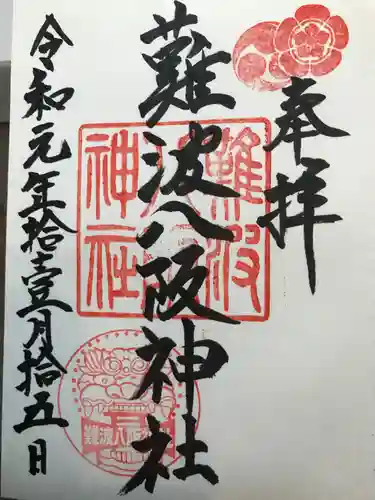 奉拝
難波八阪神社
令和元年拾壹月拾五日
難波八阪神社